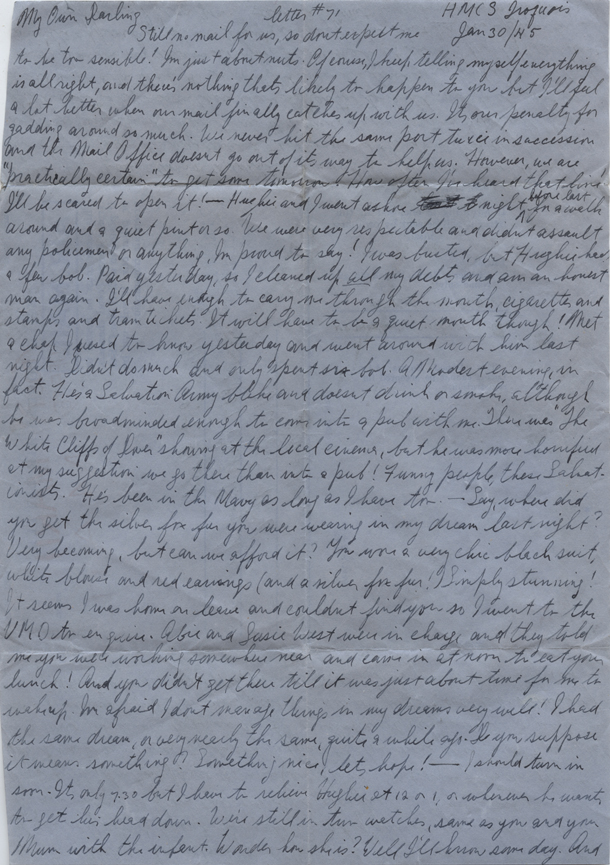 My Own Darling letter #71 HMCS Iroquois
Still no mail for us, so dont expect me Jan 30/45
to be too sensible! Im just about nuts. Of course, I keep telling myself everything
is all right, and theres nothing thats likely to happen to you but I'll feel
a lot better when our mail finally catches up with us. Its our penalty for
gadding around so much. We never hit the same port twice in succession
and the Mail Office doesnt go out of its way to help us. However, we are
"practically certain" to get some tomorrow! How often I've heard that line!
I'll be scared to open it! — Hughie and I went ashore night before last for a walk
around and a quiet pint or so. We were very respectable and didnt assault
any policemen or anything, Im proud to say! I was busted, but Hughie had
a few bob. Paid yesterday, so I cleaned up all my debts and am an honest
man again. I'll have enough to carry me through the month, cigarettes and
stamps and tram tickets. It will have to be a quiet month though! Met
a chap I used to know yesterday and went around with him last
night. Didnt do much and only spent six bob. A Modest evening, in
fact. Hes a Salvation Army bloke and doesnt drink or smoke, although
he was broadminded enough to come into a pub with me. There was "The
White Cliffs of Dover" showing at the local cinema, but he was more horrified
at my suggestion we go there than into a pub! Funny people, these Salvat-
ionists. Hes been in the Navy as long as I have too. — Say, where did
you get the silver fox fur you were wearing in my dream last night?
Very becoming, but can we afford it? You wore a very chic black suit,
white blouse and red earrings (and a silver fox fur!) Simply stunning!
It seems I was home on leave and couldnt find you so I went to the
VMO to enquire. Abie and Susie West were in charge and they told
me you were working somewhere near and came in at noon to eat your
lunch! And you didn't get there till it was just about time for me to
wake up. Im afraid I dont manage things in my dreams very well! I had
the same dream, or very nearly the same, quite a while ago. Do you suppose
it means something? Something nice, lets hope! — I should turn in
soon. Its only 7.30 but I have to relieve Hughie at 12 or 1, or whenever he wants
to get his head down. Were still in two watches, same as you and your
Mum with the infant. Wonder how she is? Well I'll know some day. And